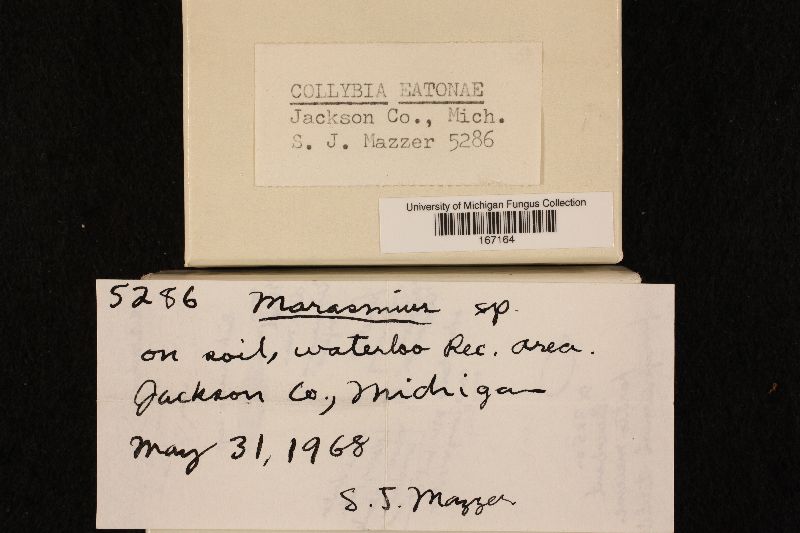 COLLYBIA EATONAE
Jackson Co., Mich.
S. J. Mazzer 5286
University of Michigan Fungus Collection
167164
5286 Marasmius sp.
on soil, waterloo Rec. area.
Jackson Co., Michigan
May 31, 1968
S. J. Mazzer